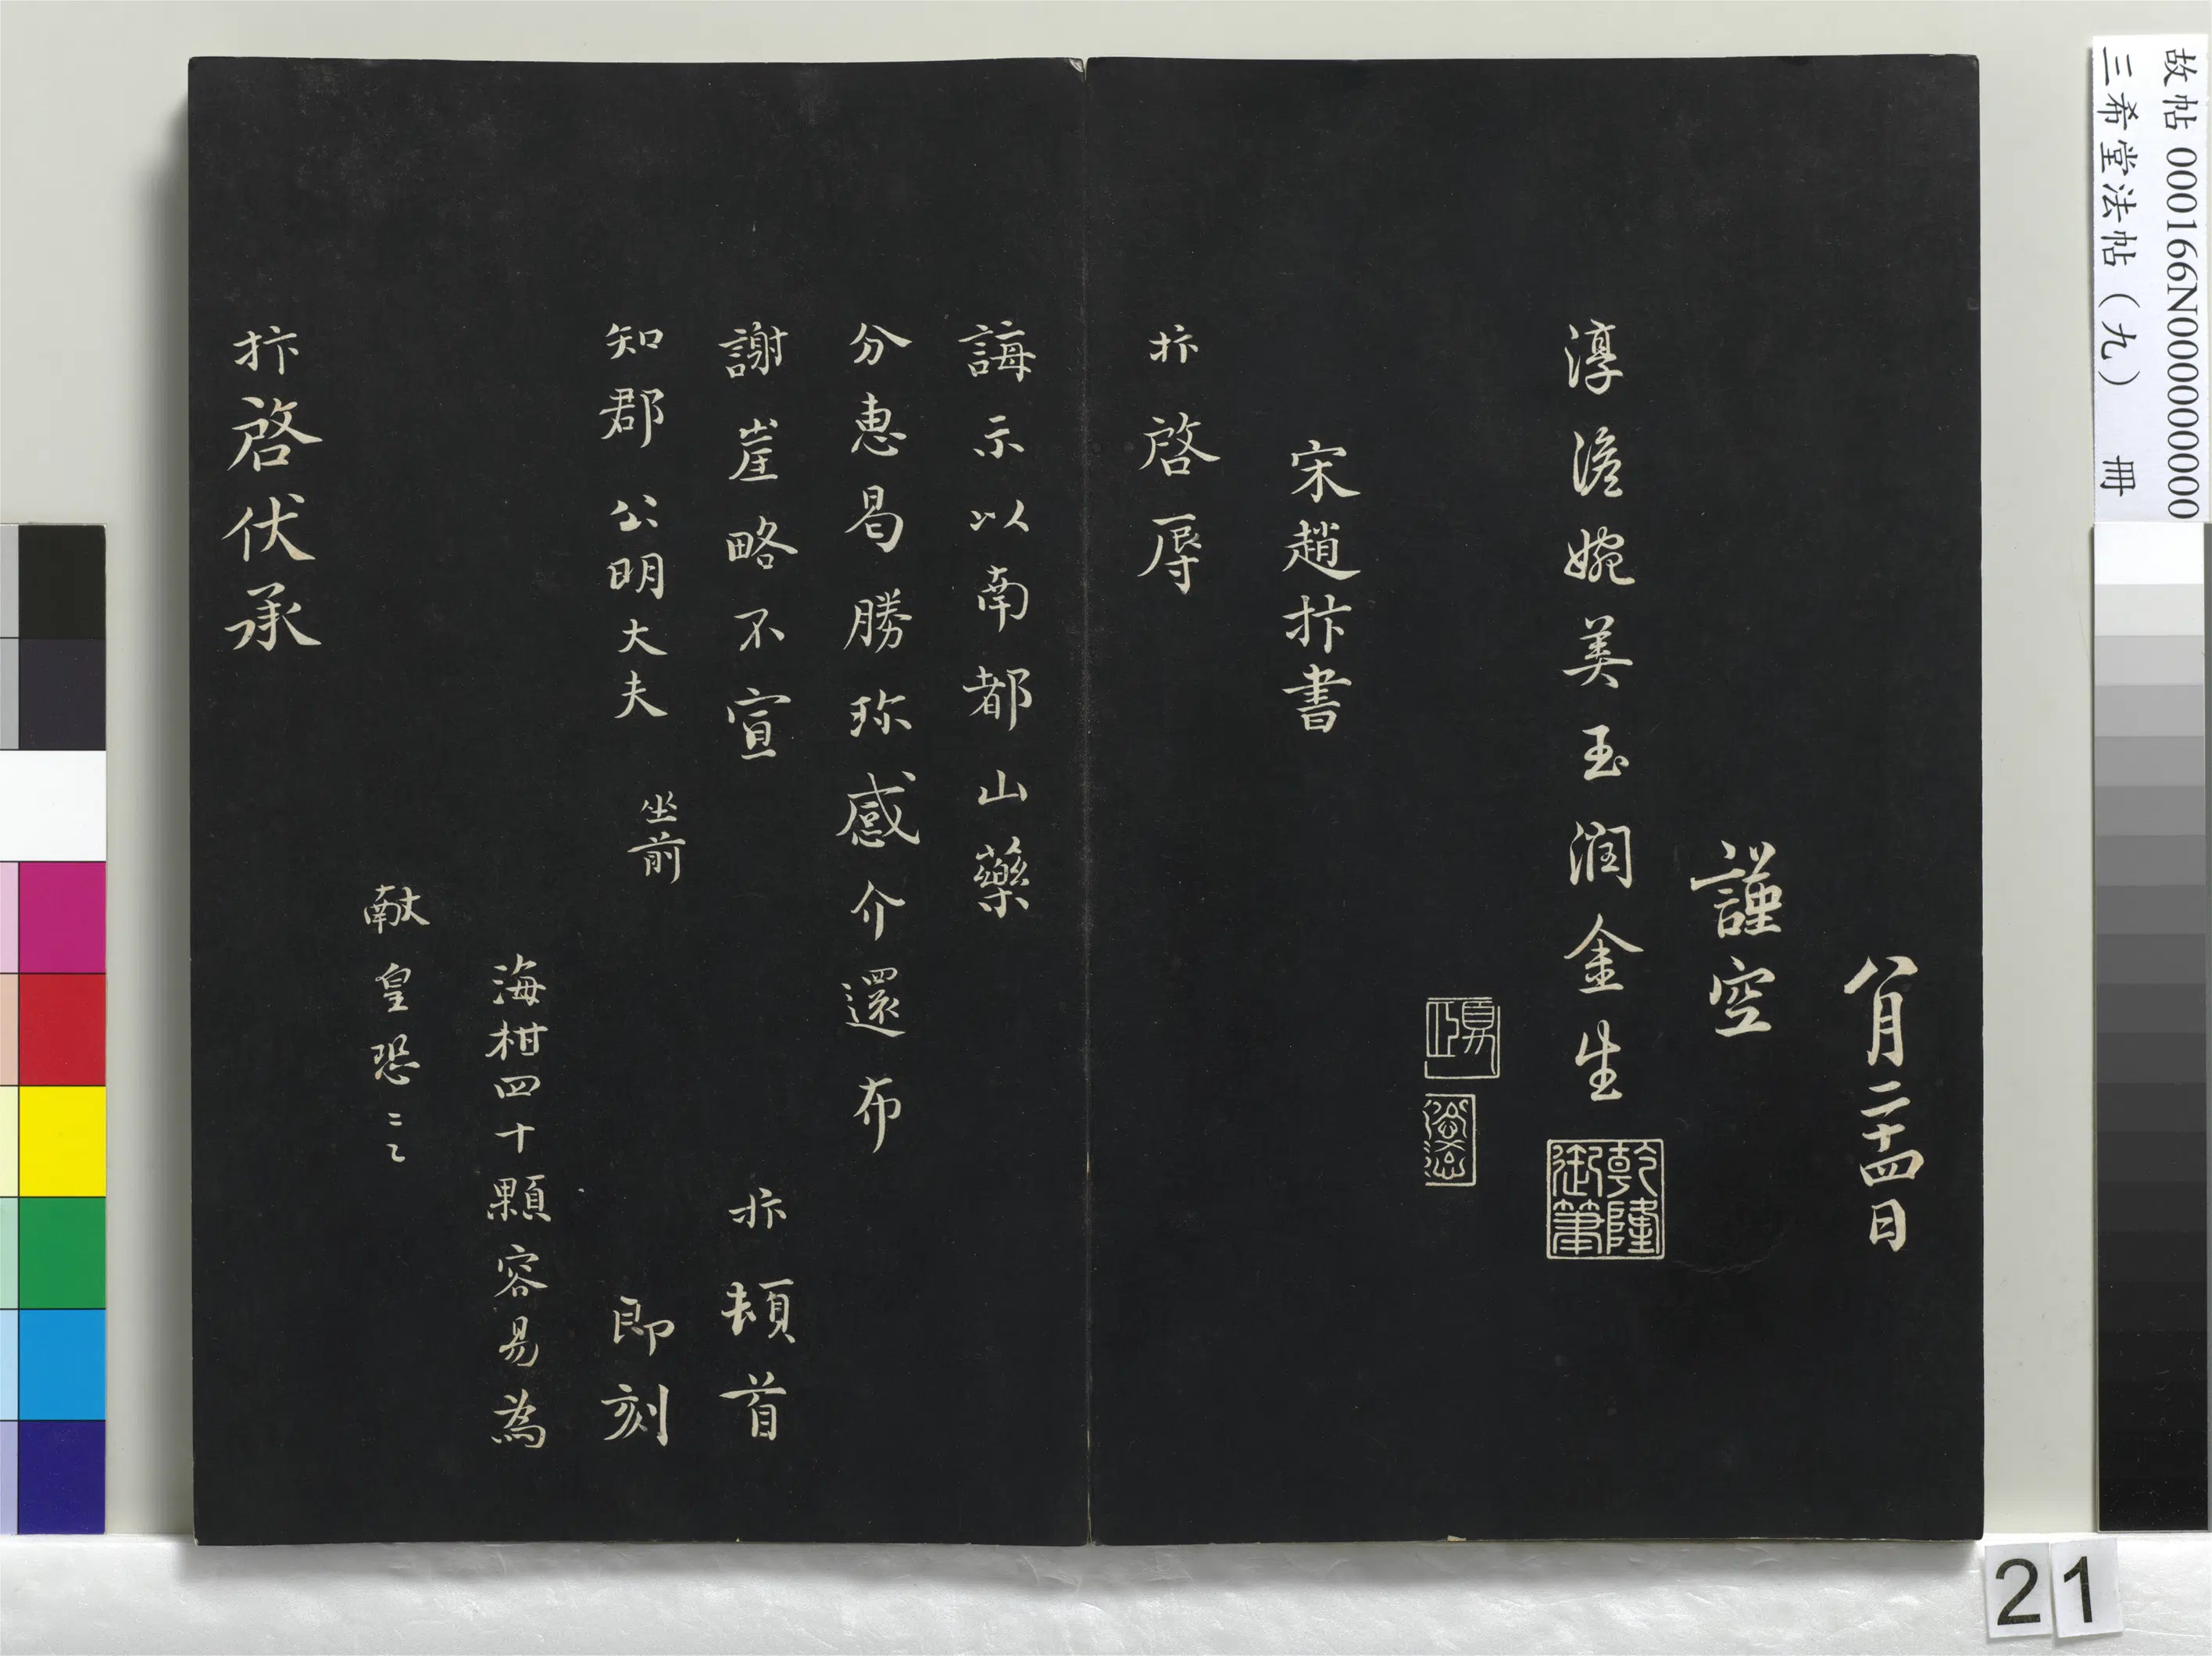 八月二十四日
謹空
淳澹婉美玉潤金生
乾隆
御筆
宋趙抃書
抃啓辱
誨示以南都山藥
分惠曷勝珎感介還布
謝崖略不宣
抃頓首
知郡公明大夫
坐前
即刻
海柑四十顆容易為
献皇恐二二
抃啓伏承
故帖 000166N000000000
三希堂法帖（九） 冊
21